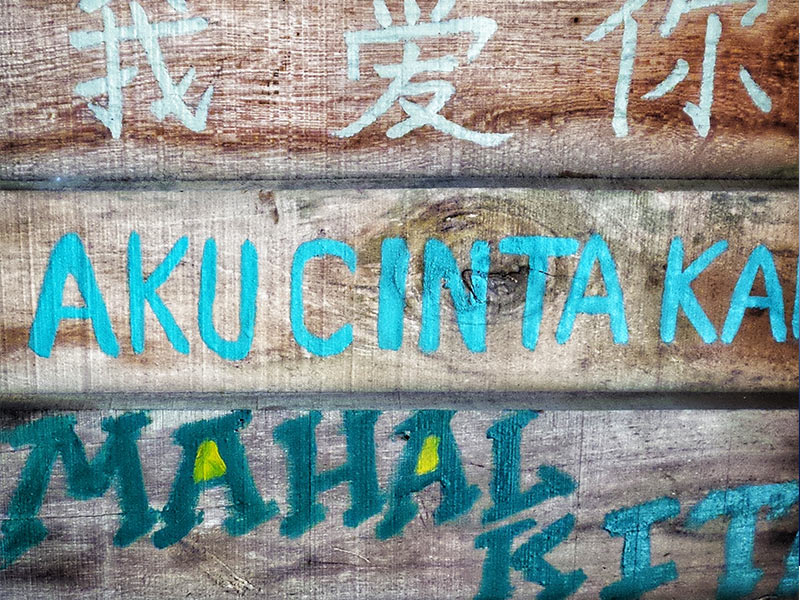 我 爱 你
AKU CINTA KA
MAHAL
KITA